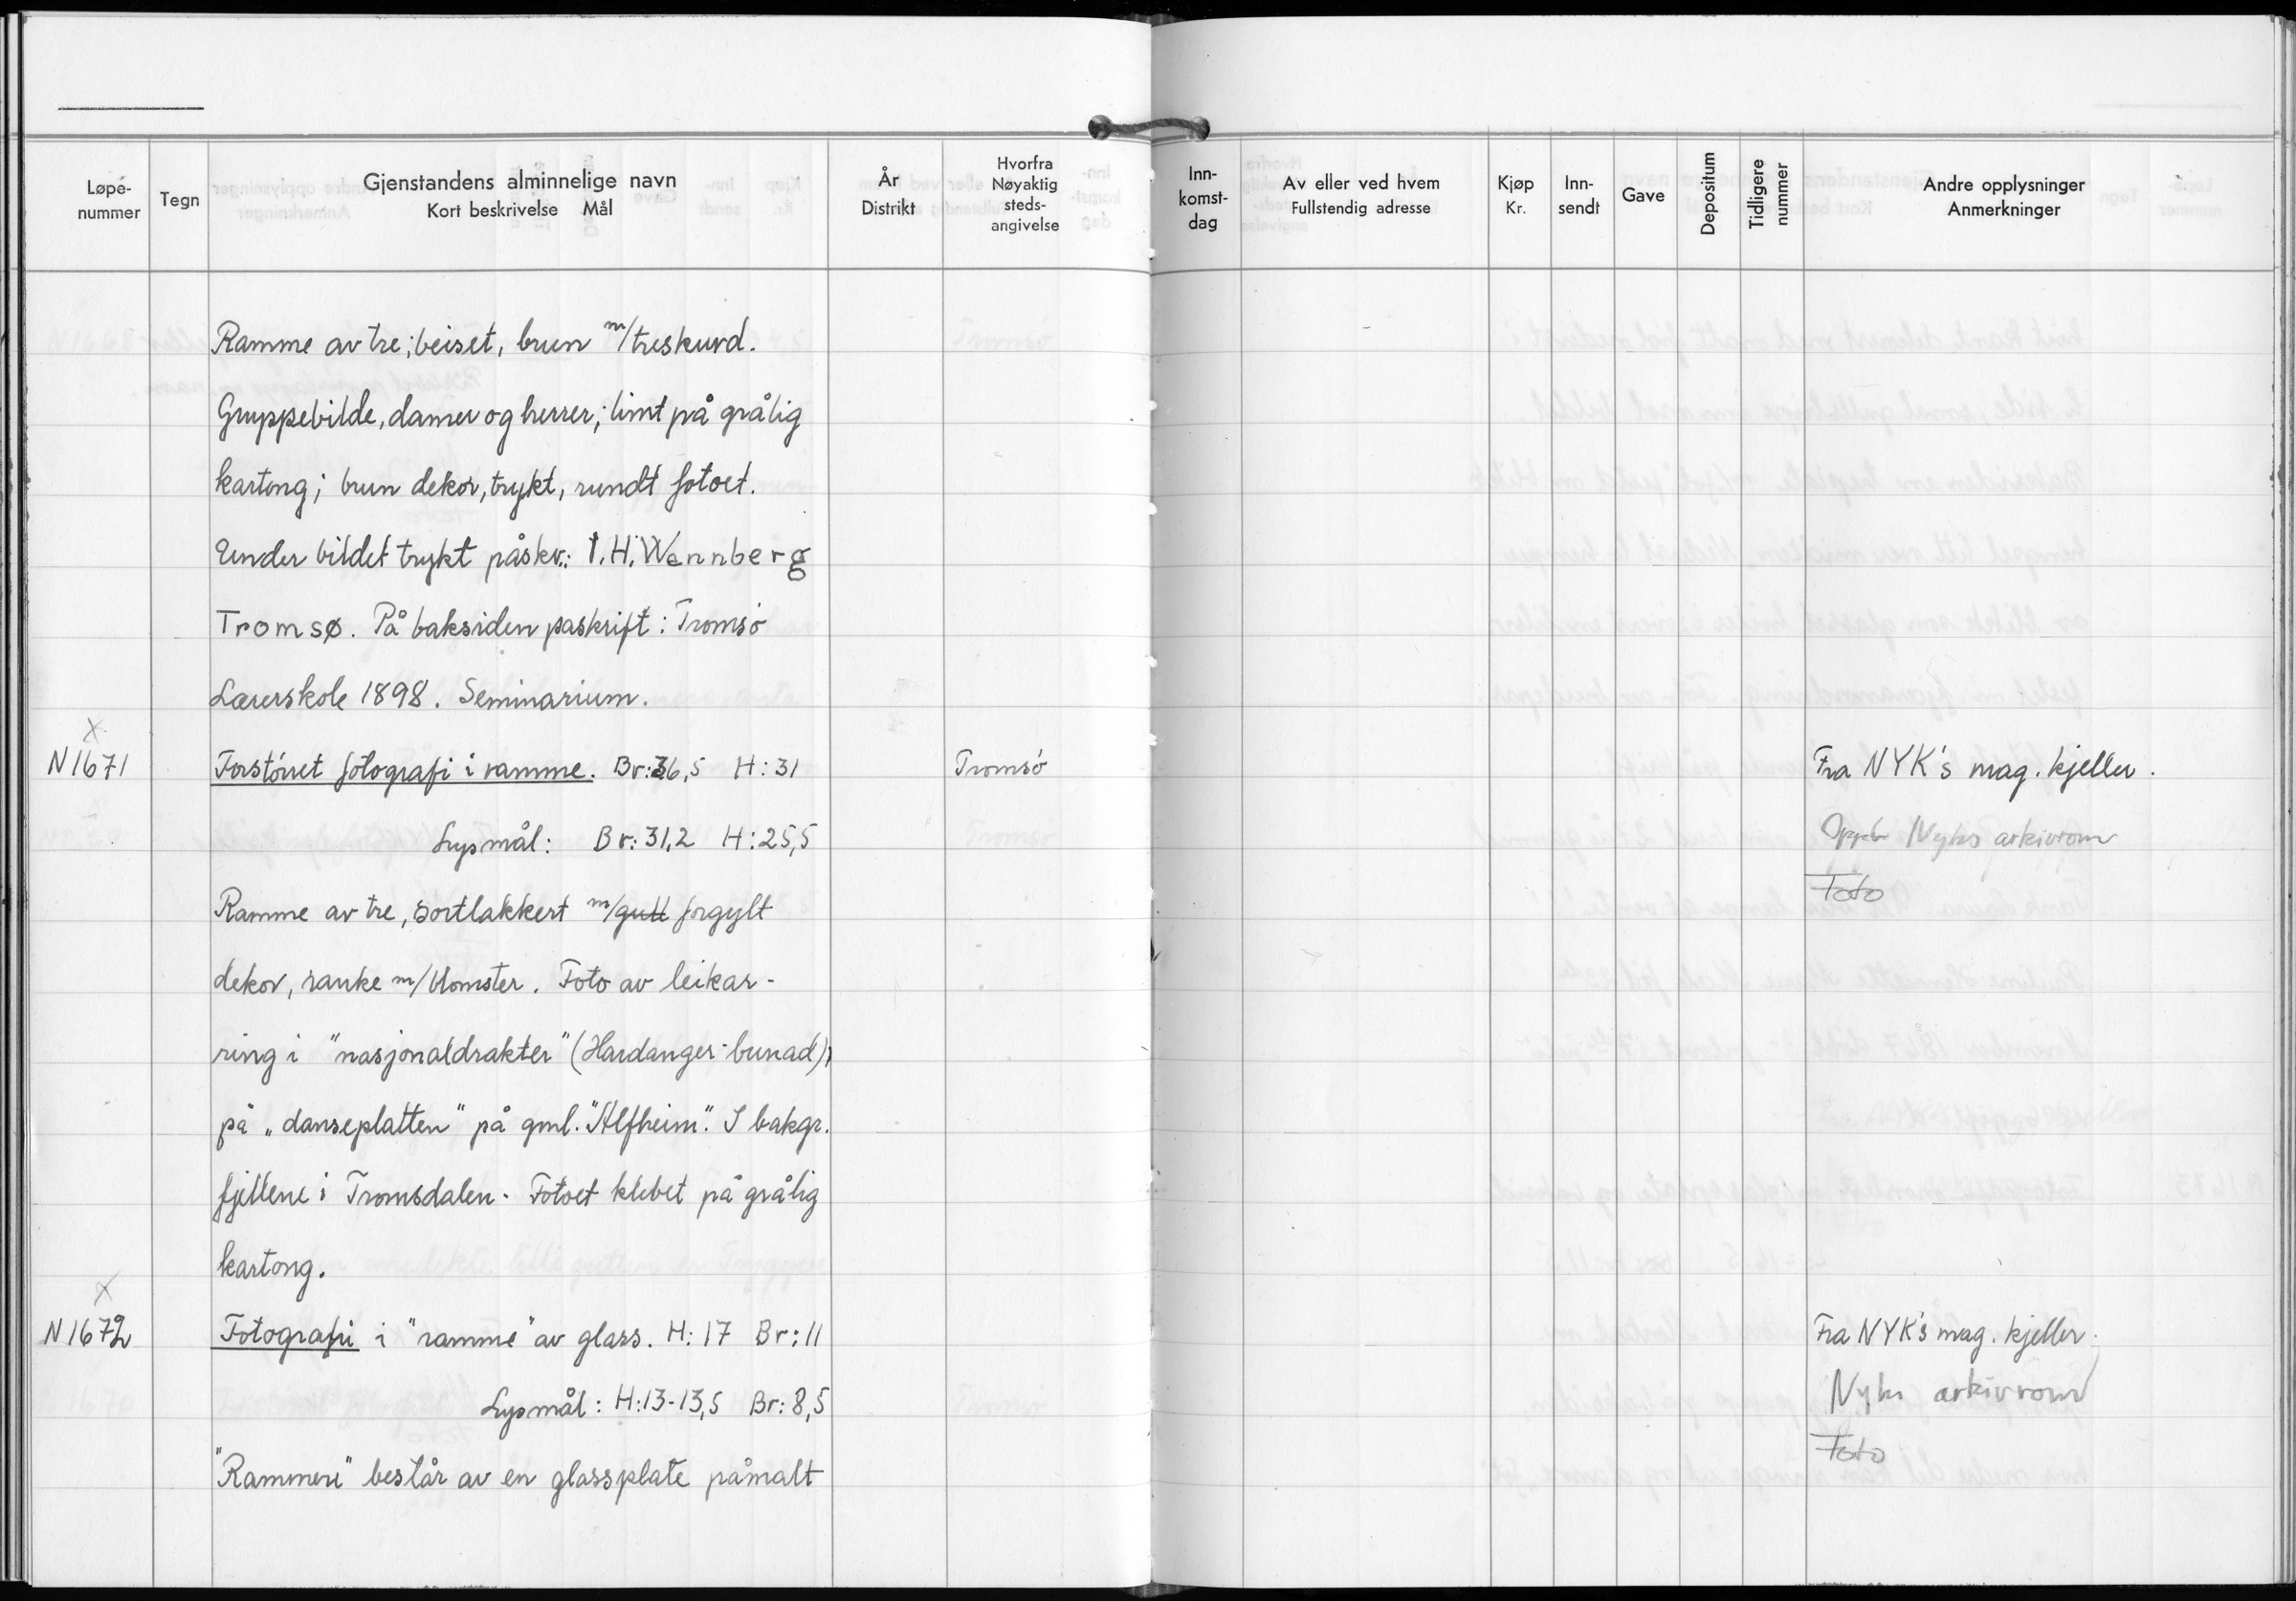 Løpe-
nummer
Tegn
Gjenstandens alminnelige navn
Kort beskrivelse Mål
År
Distrikt
Hvorfra
Nøyaktig
steds-
angivelse
Inn-
komst-
dag
Av eller ved hvem
Fullstendig adresse
Kjøp
Kr.
Inn-
sendt
Gave
Depositum
Tidligere
nummer
Andre opplysninger
Anmerkninger
Ramme av tre; beiset, brun m/treskurd.
Gruppebilde, damer og herrer; limt på grålig
kartong; brun dekor, trykt, rundt fotoet.
Under bildet trykt påskr.: I.H. Wennberg
Tromsø. På baksiden paskrift: Tromsö
Lærerskole 1898. Seminarium.
X
N1671 Forstörret fotografi i ramme. Br:36,5 H:31 Tromsö Fra NYK's mag. kjeller.
Lysmål: Br:31,2 H:25,5 Nyks arkivrom
Foto
Ramme av tre, sortlakkert m/gull forgylt
dekor, ranke m/blomster. Foto av leikar-
ring i "nasjonaldrakter" (Hardanger-bunad),
på "danseplatten" på gml. "Alfheim". I bakgr.
fjellene i Tromsdalen. Fotoet klebet på grålig
kartong.
X
N1672 Fotografi i "ramme" av glass. H:17 Br:11 Fra NYK's mag. kjeller.
Lysmål: H:13-13,5 Br:8,5 Nyks arkivrom
Foto
"Rammen" består av en glassplate påmalt